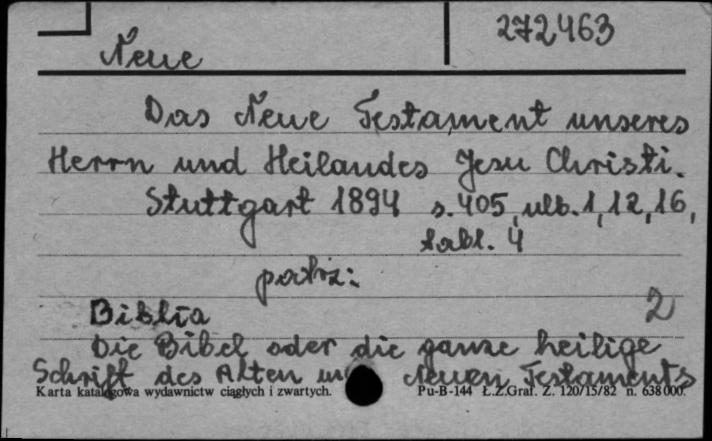 272463
Neue
Das Neue Testament unseres
Herrn und Heilandes Jesu Christi.
Stuttgart 1894 s. 405, ulb. 1, 12, 16,
tabl. 4
patrz:
Biblia
2
Die Bibel oder die ganze heilige
Schrift des Alten Neuen Testaments
Karta katalogowa wydawnictw ciągłych i zwartych. Pu-B-144 Ł.Z.Graf. Z. 120/15/82 n. 638000.